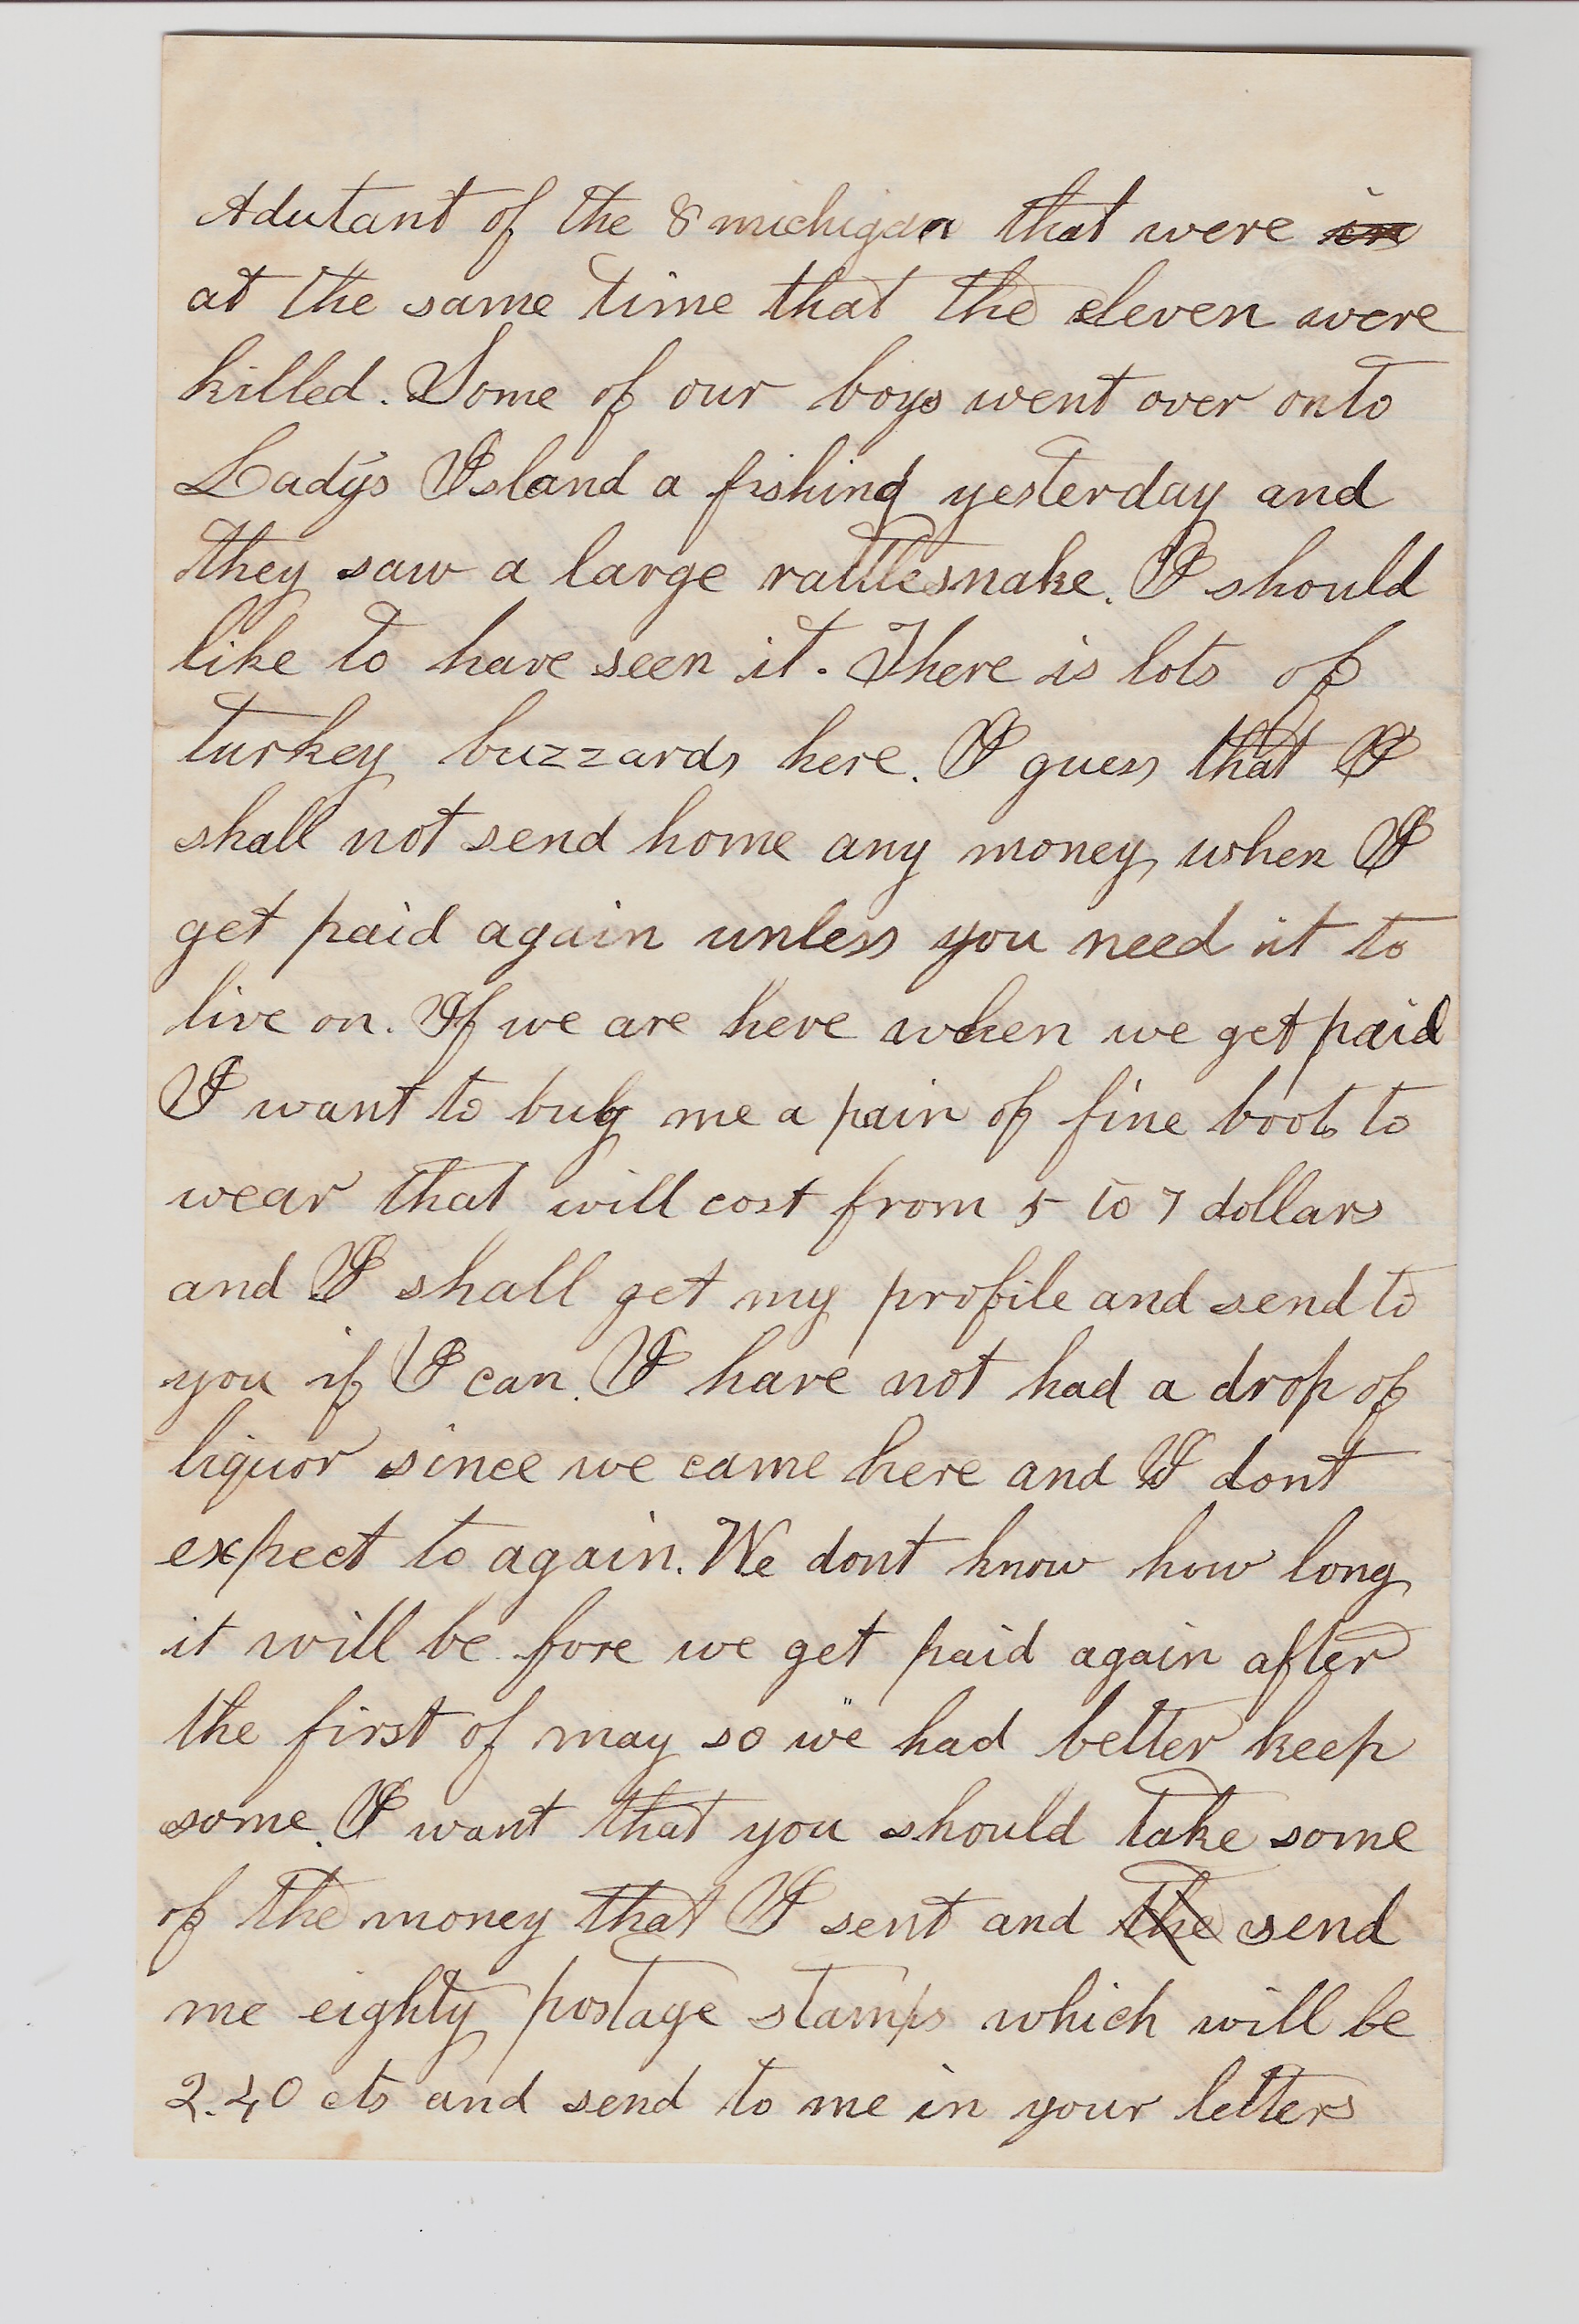 Adutant of the 8 michigan that were in
at the same time that the eleven were
killed. Some of our boys went over onto
Ladys Island a fishing yesterday and
they saw a large rattlesnake. I should
like to have seen it. There is lots of
turkey buzzards here. I guess that I
shall not send home any money when I
get paid again unless you need it to
live on. If we are here when we get paid
I want to buy me a pair of fine boots to
wear that will cost from 5 to 7 dollars
and I shall get my profile and send to
you if I can. I have not had a drop of
liquor since we came here and I dont
expect to again. We dont know how long
it will be fore we get paid again after
the first of may so we had better keep
some. I want that you should take some
of the money that I sent and the send
me eighty postage stamps which will be
2.40 cts and send to me in your letters